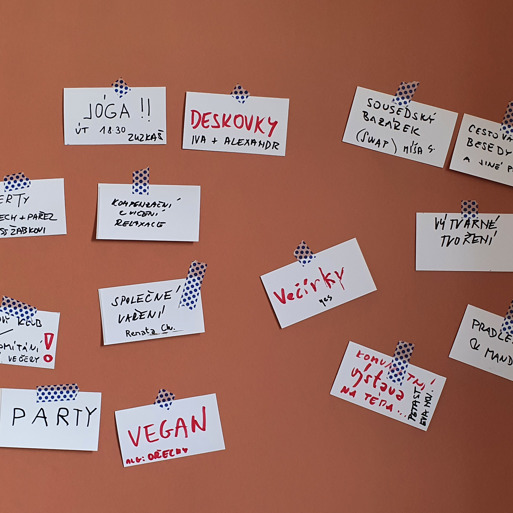 JÓGA !!
ÚT 18:30 ZUZKAŠ
DESKOVKY
IVA + ALEXANDR
SOUSEDSKÝ
BAZÁREK
(SWAP) MÍŠA G
CESTO
BESEDY
A JINÉ P
ERTY
ECH + PAŘEZ
ŽABKOVI
KOMPENZAČNÍ
CVIČENÍ
RELAXACE
VÝTVARNÉ
TVOŘENÍ
SPOLEČNÉ
VAŘENÍ!
Renata Ch.
Večírky
yes
KLUB
PROMÍTÁNÍ
VEČERY !
PRADLE
& MAND
KOMUNITNÍ
výstava
NA TEPA...
PARTY
VEGAN
ALG: OŘECHY